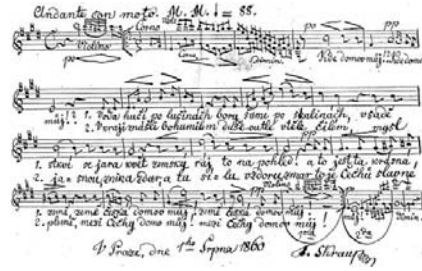 Andante con moto. M. M. ♩ = 88.
Violino Corno po pp
po Dimin. Kde domov můj, Kde domov
můj! 1. Voda hučí po lučinách bory šumí po skalinách, v sadě
2. V kraji znáš-li bohumilém duše outlé v těle čilém mysl
1. stkví se jara květ zemský ráj to na pohled! a to jest ta krásná,
2. jasnou, znik a zdar, a tu sílu vzdoru zmar to je Čechů slavné
1. země, země česká domov můj, země česká domov můj!
2. plémě, mezi Čechy domov můj! mezi Čechy domov můj!
V Praze, dne 1ho Srpna 1860 F. Škraup